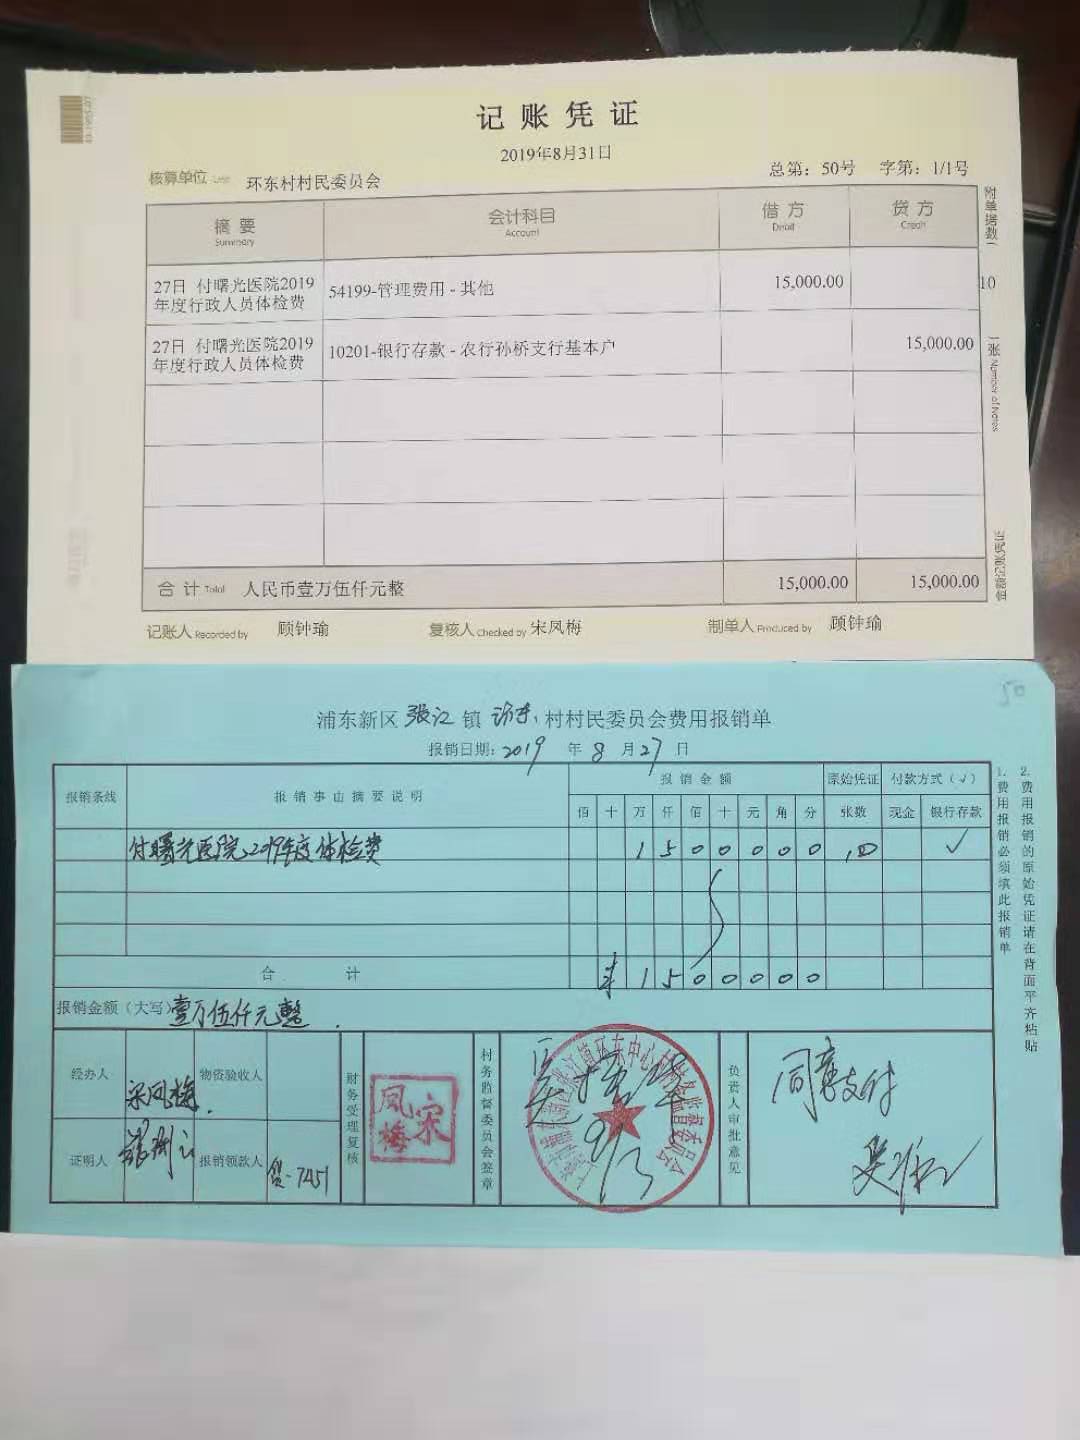 记账凭证
2019年8月31日
核算单位 Unit 环东村村民委员会
总第：50号 字第：1/1号
摘要 会计科目 借方 贷方
Summary Account Debit Credit
27日 付曙光医院2019年度行政人员体检费 54199-管理费用 - 其他 15,000.00
27日 付曙光医院2019年度行政人员体检费 10201-银行存款 - 农行孙桥支行基本户 15,000.00
合计 Total 人民币壹万伍仟元整 15,000.00 15,000.00
记账人 Recorded by 顾钟瑜 复核人 Checked by 宋凤梅 制单人 Produced by 顾钟瑜
附单据数
10
张 Number of Notes
金额记账凭证
50
浦东新区 张江 镇 环东 村村民委员会费用报销单
报销日期：2019 年 8 月 27 日
报销条线 报销事由摘要说明 报销金额 原始凭证 付款方式（√）
佰 十 万 仟 佰 十 元 角 分 张数 现金 银行存款
付曙光医院2019年度体检费 1 5 0 0 0 0 0 10 √
合计 ¥ 1 5 0 0 0 0 0
报销金额（大写）壹万伍仟元整
经办人 宋凤梅 物资验收人
证明人 报销领款人 贷-7451
财务受理复核
宋凤梅
村务监督委员会签章
张江镇环东中心村村务监督委员会
9/3
负责人审批意见
同意支付
1.费用报销必须填此报销单
2.费用报销的原始凭证请在背面平齐粘贴